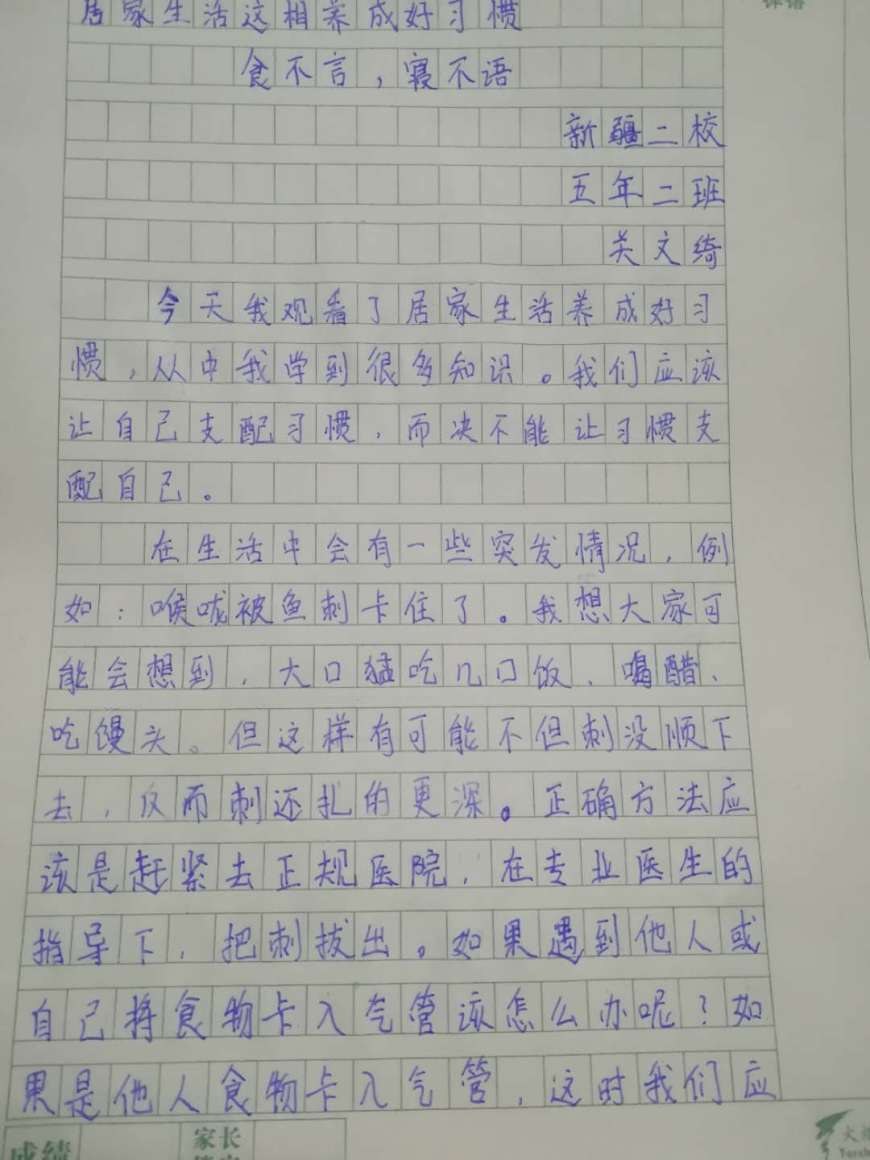 居家生活这相养成好习惯
食不言，寝不语
新疆二校
五年二班
关文绮
今天我观看了居家生活养成好习
惯，从中我学到很多知识。我们应该
让自己支配习惯，而决不能让习惯支
配自己。
在生活中会有一些突发情况，例
如：喉咙被鱼刺卡住了。我想大家可
能会想到，大口猛吃几口饭、喝醋、
吃馒头。但这样有可能不但刺没顺下
去，反而刺还扎的更深。正确方法应
该是赶紧去正规医院，在专业医生的
指导下，把刺拔出。如果遇到他人或
自己将食物卡入气管该怎么办呢？如
果是他人食物卡入气管，这时我们应
成绩
家长